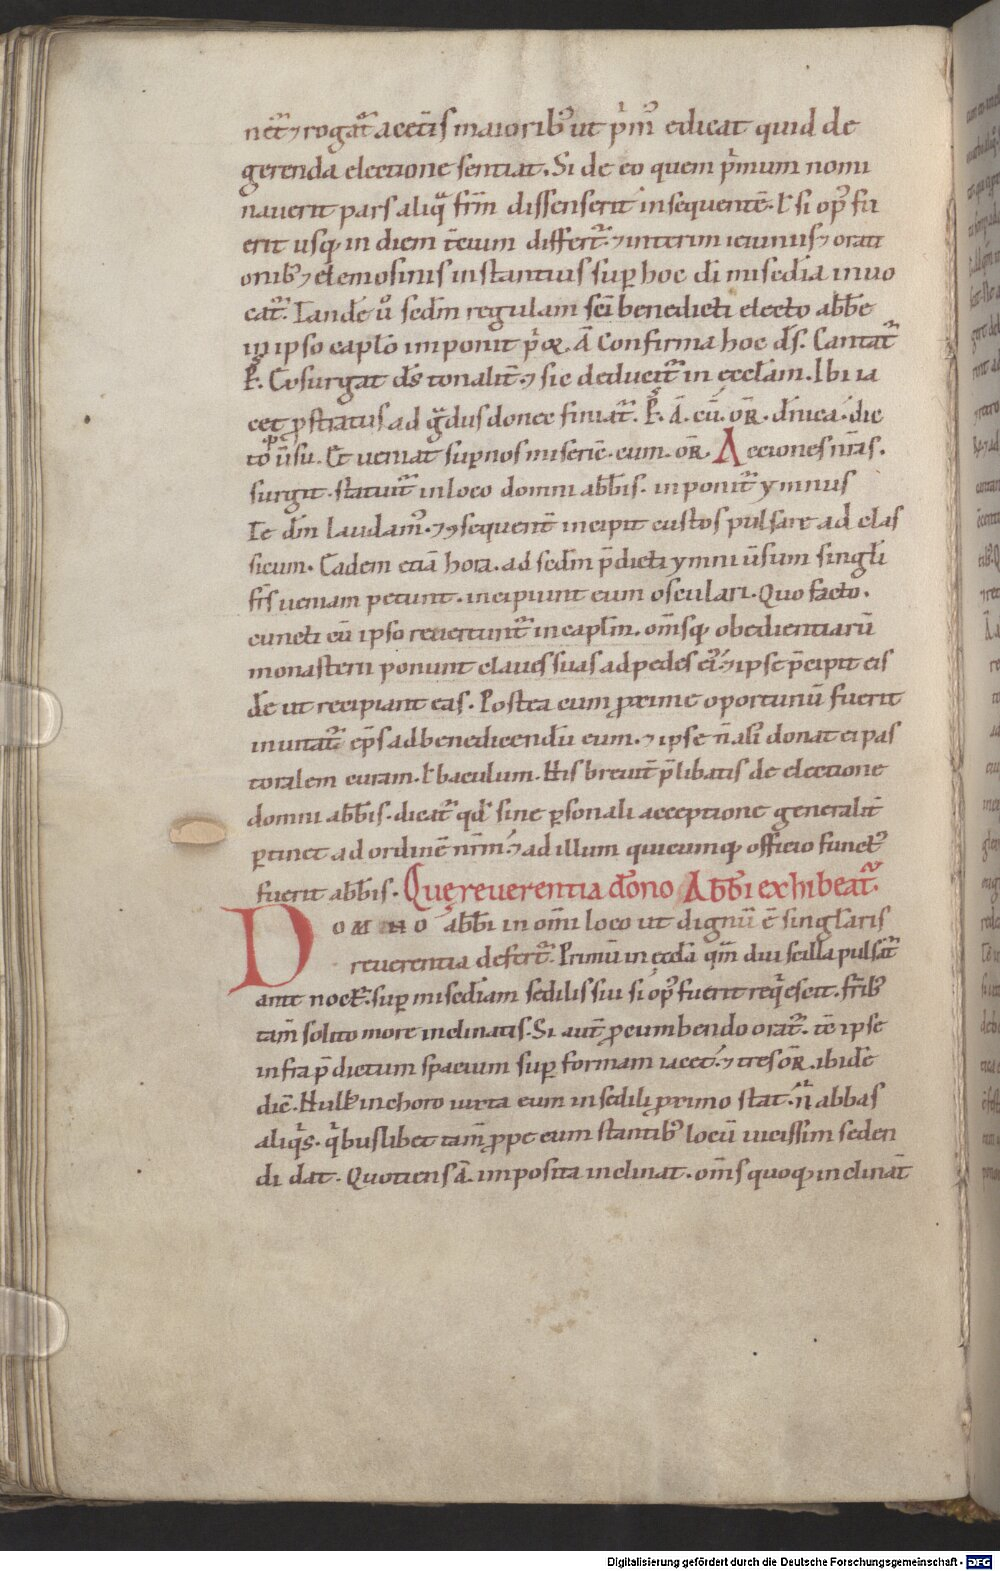 net᷑ ⁊ rogat᷑ a cet̄is maiorib᷒ ut p̓m᷒ edicat quid de
gerenda electione sentiat. Si de eo quem p̓mum nomi
nauerit pars aliq̄ fr̄m dissenserit insequent̄. ł si op᷒ fu
erit usq, in diem t̄cium differt᷑. ⁊ interim ieiuniis ⁊ orati
onib᷒ ⁊ elemosinis instantius sup hoc d̄i mis̄cdia inuo
cat᷑. Tand̄e u̓ sed̄m regulam sc̄i benedicti electo abb̄e
in ipso capl̄o imponit p̓or. a᷒. Confirma hoc d̄s. Cantat᷑
℟. Cōsurgat d̄s tonalit̄. ⁊ sic deducit᷑ in eccl̄am. Ibi ia
cet p̄stratus ad g̓dus donec finiat᷑. ℟. a᷒. cū. or̄. d̄nica. dic
to ūsu. Et ueniat sup nos miseric̄. cum. or̄. Acciones nr̄as.
surgit. statuit᷑ in loco domni abb̄is. inponit᷑ ymnus
Te d̄m laudam᷒. ⁊ ꝯsequent̄ incipit custos pulsare ad clas
sicum. Eadem etiā hora. ad sed̄m p̄dicti ymni ūsum singl̄i
fr̄s ueniam petunt. incipiunt eum osculari. Quo facto.
cuncti cū ipso reuertunt᷑ in capl̄m. om̄sq, obedientiarū
monasterii ponunt claues suas ad pedes ei᷒. ⁊ ipse p̄cipit eis
d̄e ut recipiant eas. Postea cum p̄xime oportunū fuerit
inuitat᷑ ep̄s ad benedicend̄u eum. ⁊ ipse n̄ alii donat ei pas
toralem curam. ł baculum. His breuit̄ p̄libatis de electione
domni abb̄is. dicat᷑ qd̄ sine psonali acceptione generalit̄
ptinet ad ordinē nr̄m. ⁊ ad illum quicumq, officio funct᷒
fuerit abb̄is. Quę reuerentia dōno Abb̄i exhibeat᷑.
DOMNO abb̄i in om̄i loco ut dignū ē singl̄aris
reuerentia defert᷑. Primū in eccl̄a q̄m diu scilla pulsat᷑
ante noct̄. sup mis̄cdiam sedilis sui si op᷒ fuerit req̓escit. fr̄ib᷒
tam̄ solito more inclinatis. Si aut̄ p̄cumbendo orat᷑. t̄c ipse
infra p̄dictum spacium sup formam iacet. ⁊ tres or̄. ibid̄e
dic̄. Null᷒ in choro iuxta eum in sedili p̄ximo stat. n̓ abbas
aliq̓s. q̓buslibet tam̄ p̄pe eum stantib᷒ locū uicissim seden
di dat. Quotiens a᷒. imposita inclinat. om̄s quoq, inclinat̄
Digitalisierung gefördert durch die Deutsche Forschungsgemeinschaft - DFG